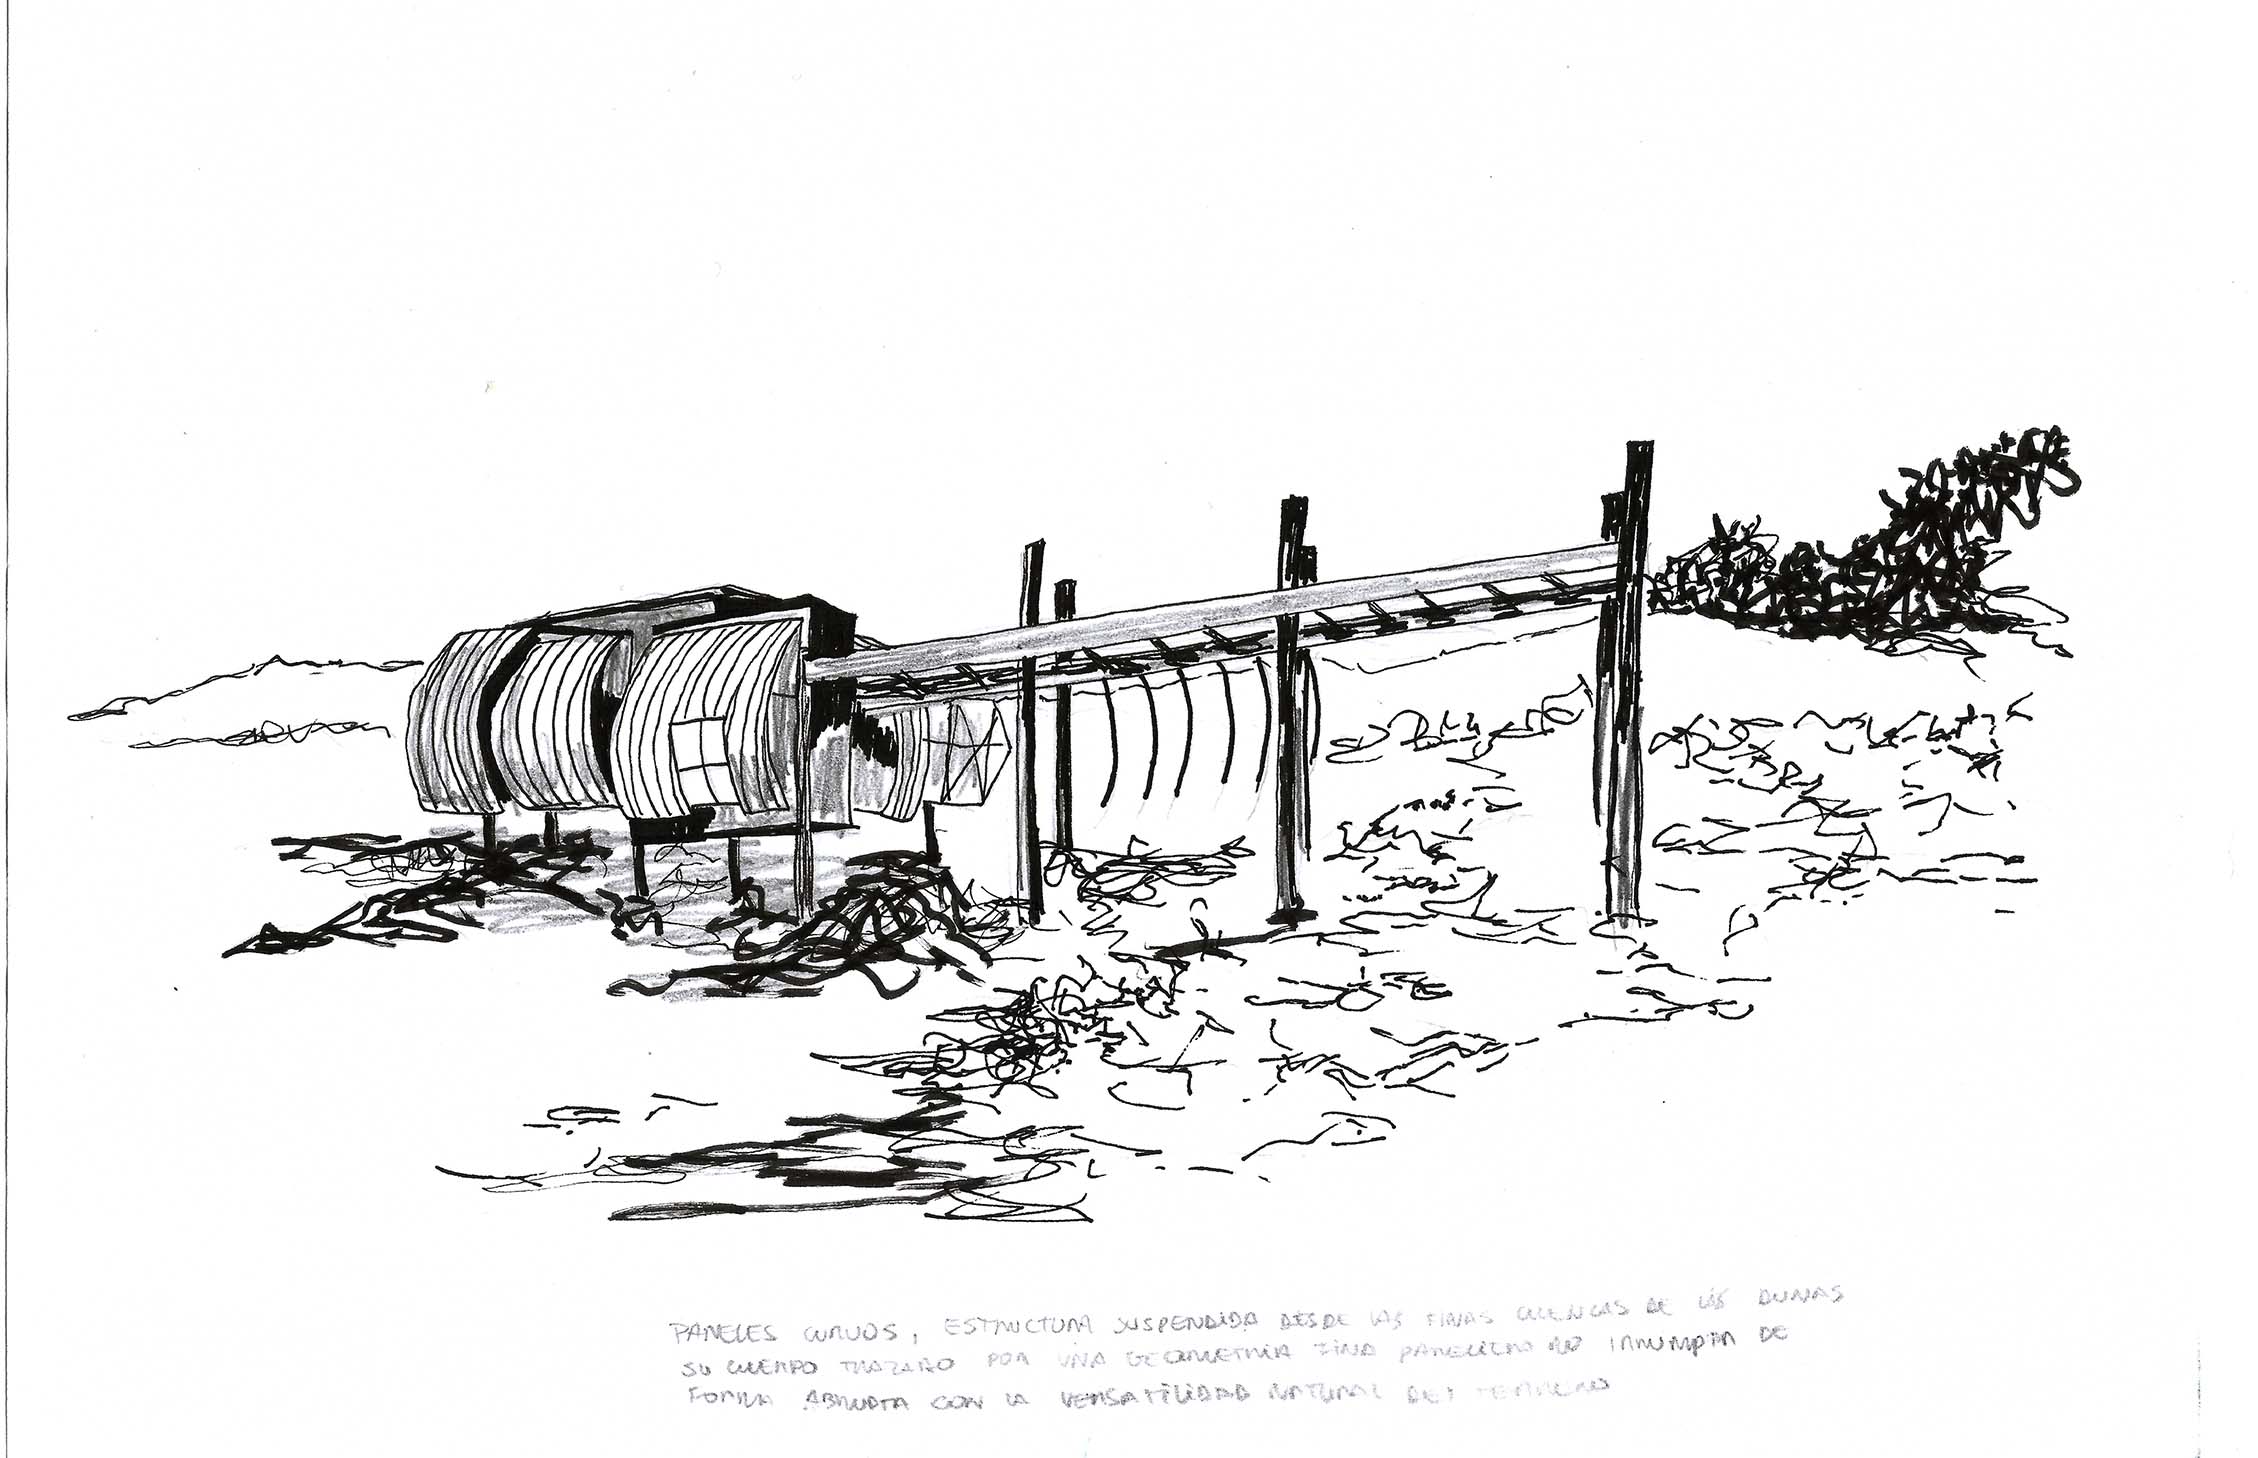 PANELES CURVOS, ESTRUCTURA SUSPENDIDA DESDE LAS FINAS CUENCAS DE LAS DUNAS
SU CUERPO TRAZADO POR UNA GEOMETRIA FINA PARECIERA NO IRRUMPIR DE
FORMA ABRUPTA CON LA VERSATILIDAD NATURAL DEL TERRENO